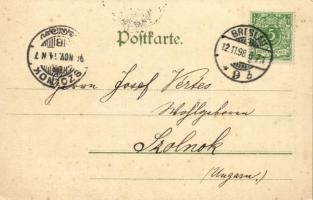 Postkarte.
BRESLAU
12.11.98
* 9 b
SZOLNOK
NOV. 14
5
Herrn Josef Vertes
Wohlgeboren
Szolnok
(Ungarn.)